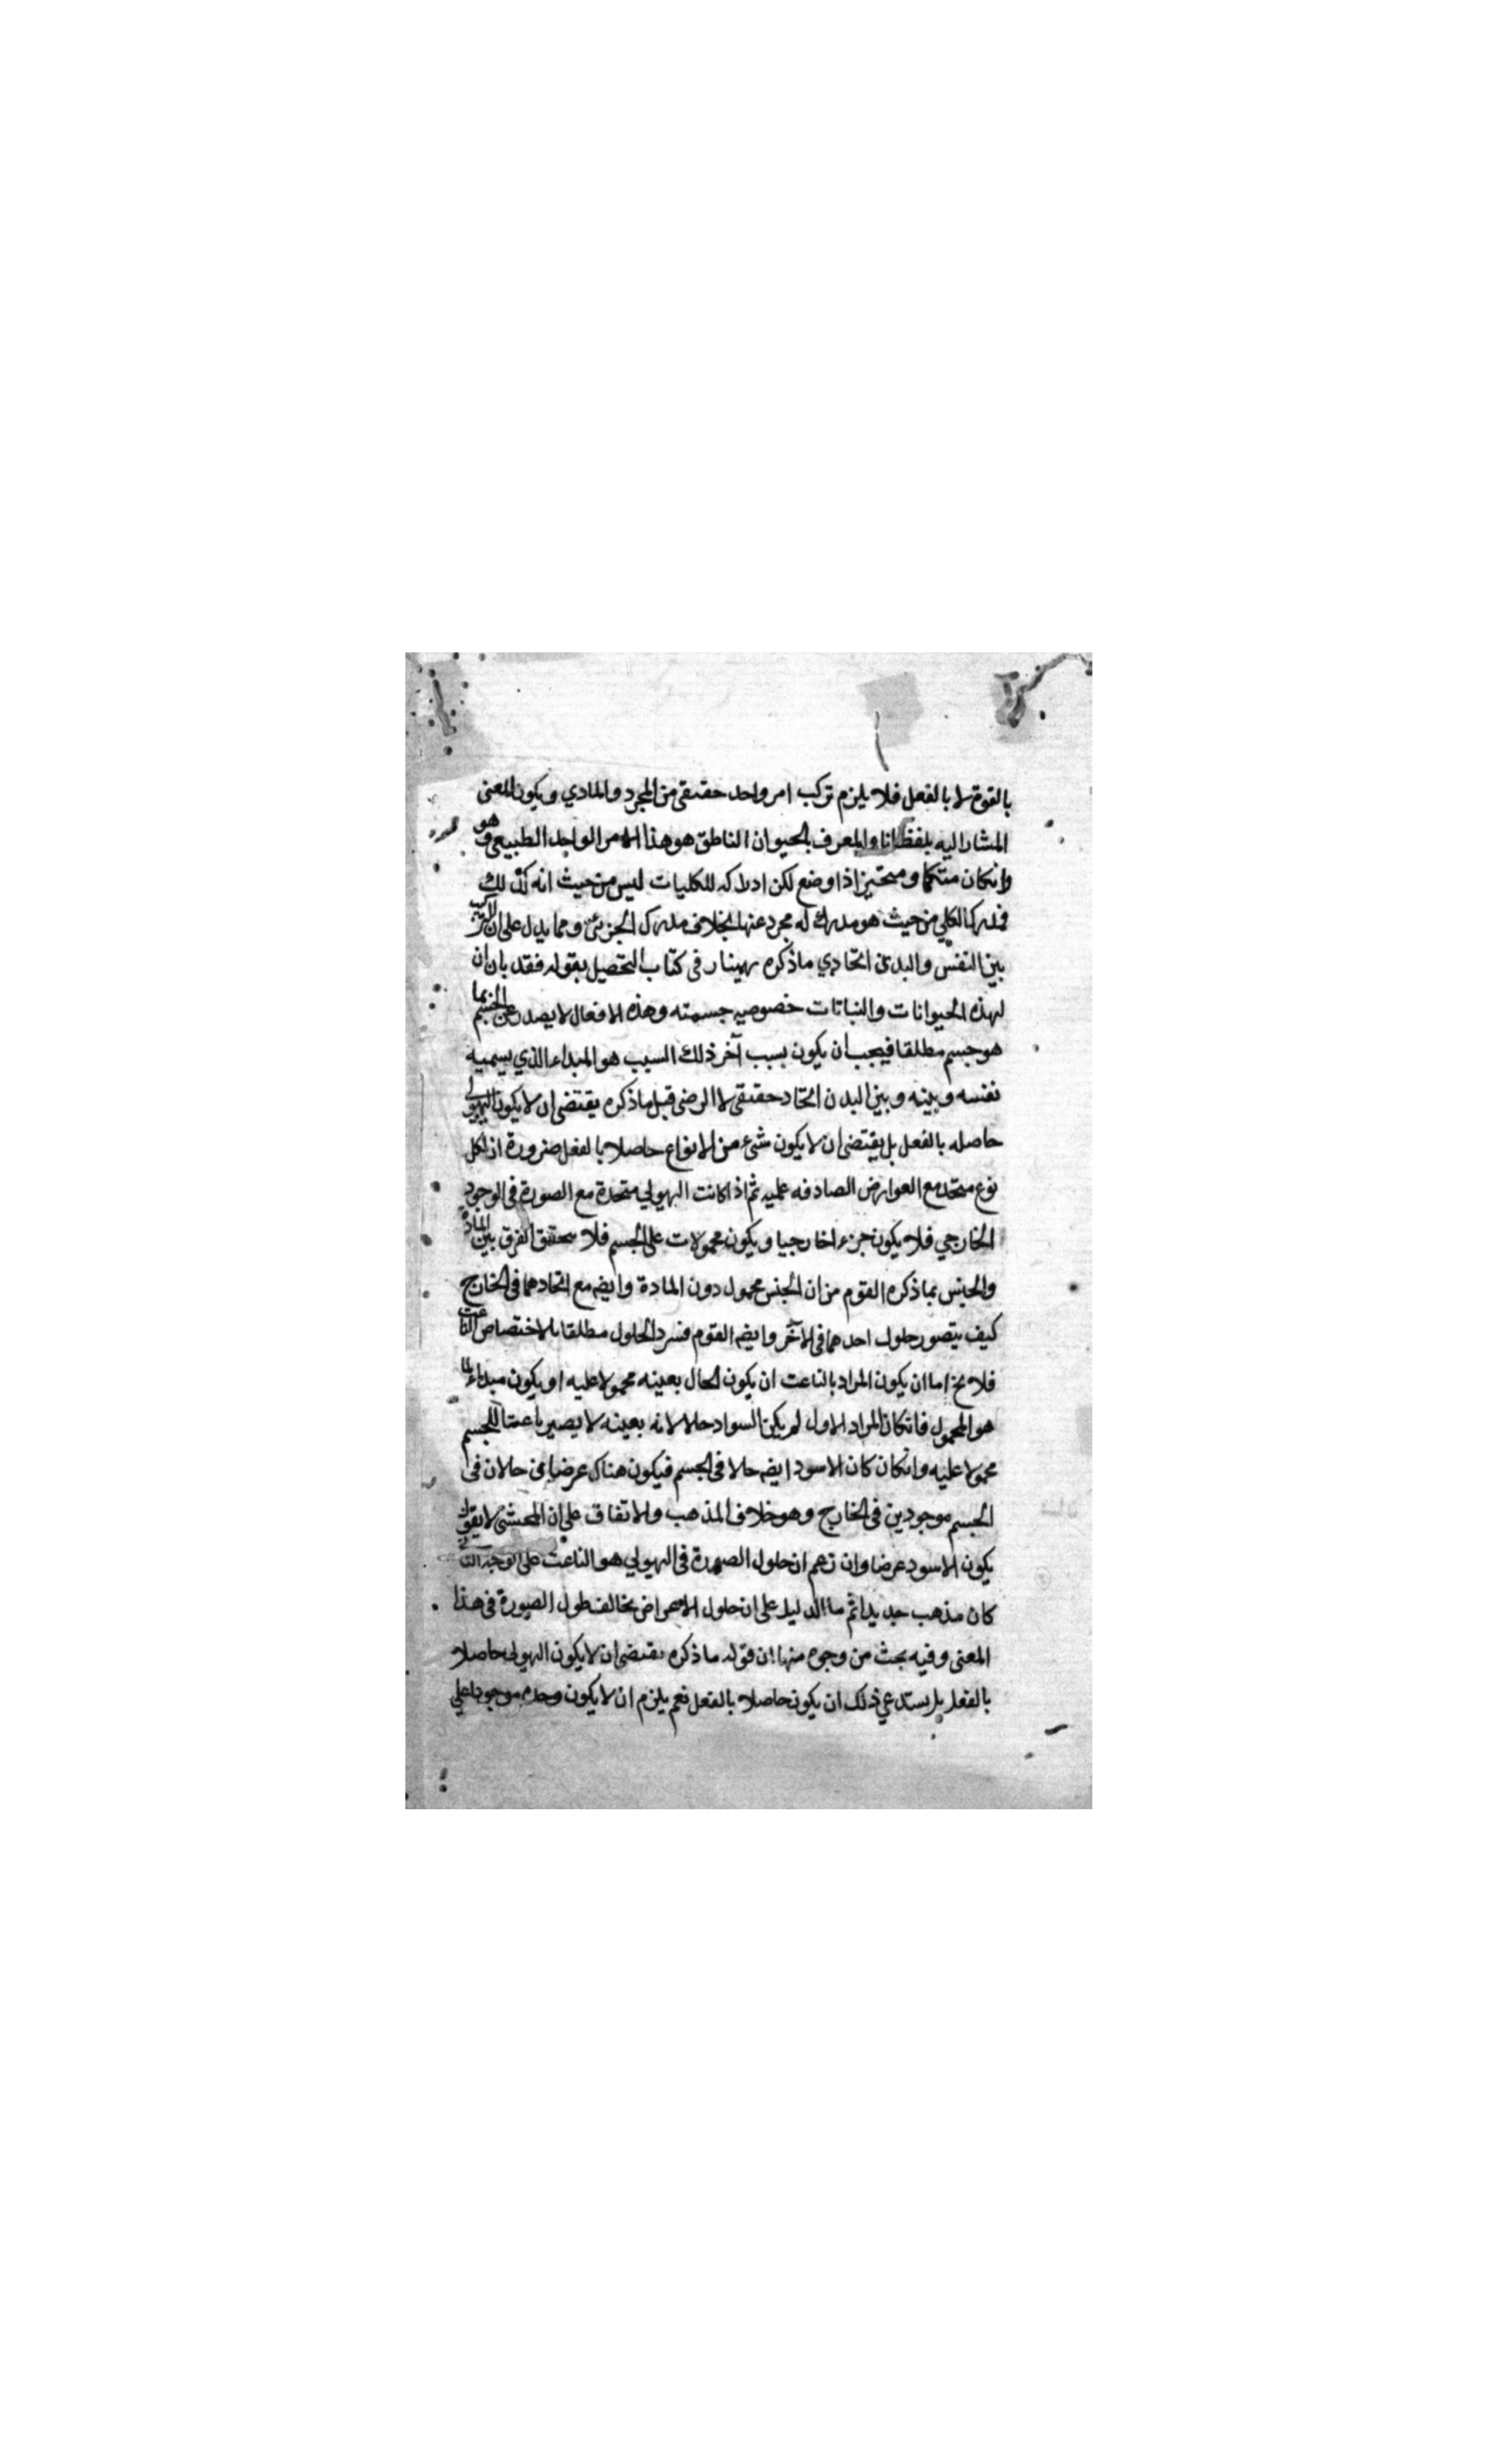 بالقوة لا بالفعل فلا يلزم تركب امر واحد حقيقى من المجرد والمادي ويكون المعنى
المشار اليه بلفظ انا والمعرف بالحيوان الناطق هو هذا الامر الواحد الطبيعى وهو
وانكان متكمما ومتحيزا ذا وضع لكن ادراكه للكليات ليس من حيث انه كذلك
فمدرك الكلي من حيث هو مدرك له مجرد عنها بخلاف مدرك الجزئى ومما يدل على ان التركيب
بين النفس والبدن اتحادي ماذكره بهمنيار فى كتاب التحصيل بقوله فقد بان ان
لهذه الحيوانات والنباتات خصوصيه جسمته وهذه الافعال لا يصدر عن الجسم بما
هو جسم مطلقا فيجب ان يكون بسبب آخر ذلك السبب هو المبداء الذي يسميه
نفسه وبينه وبين البدن اتحاد حقيقى لا عرضى قيل ماذكره يقتضى ان لا يكون الهيولى
حاصله بالفعل بل يقتضى ان لا يكون شئ من الانواع حاصلا بالفعل ضرورة ان لكل
نوع متحد مع العوارض الصادقه عليه ثم اذا كانت الهيولي متحدة مع الصورة فى الوجود
الخارجي فلا يكون جزء اخارجيا ويكون محمولات على الجسم فلا يتحقق الفرق بين المادة
والجنس بماذكره القوم من ان الجنس محمول دون المادة وايضه مع اتحادهما فى الخارج
كيف يتصور حلول احدهما فى الآخر وايضه القوم فسر الحلول مطلقا بالاختصاص الناعت
فلا يخ اما ان يكون المراد بالناعت ان يكون الحال بعينه محمولا عليه او يكون مبداء لما
هو المحمول فانكان المراد الاول لم يكن السواد حالا لانه بعينه لا يصير ناعتا للجسم
محمولا عليه وانكان كان الاسود ايضه حالا فى الجسم فيكون هناك عرضان حالان فى
الجسم موجودين فى الخارج وهو خلاف المذهب والاتفاق على ان المحشى لا يقول
يكون الاسود عرضا وان زعم ان حلول الصورة فى الهيولي هو الناعت على الوجه
كان مذهب جديدا ثم ما الدليل على ان حلول الاعراض يخالف حلول الصورة فى هذا
المعنى وفيه بحث من وجوه منها ان قوله ماذكره يقتضى ان لا يكون الهيولى حاصلا
بالفعل بل يستدعي ذلك ان يكون حاصلا بالفعل نعم يلزم ان لا يكون وحده موجودا علي